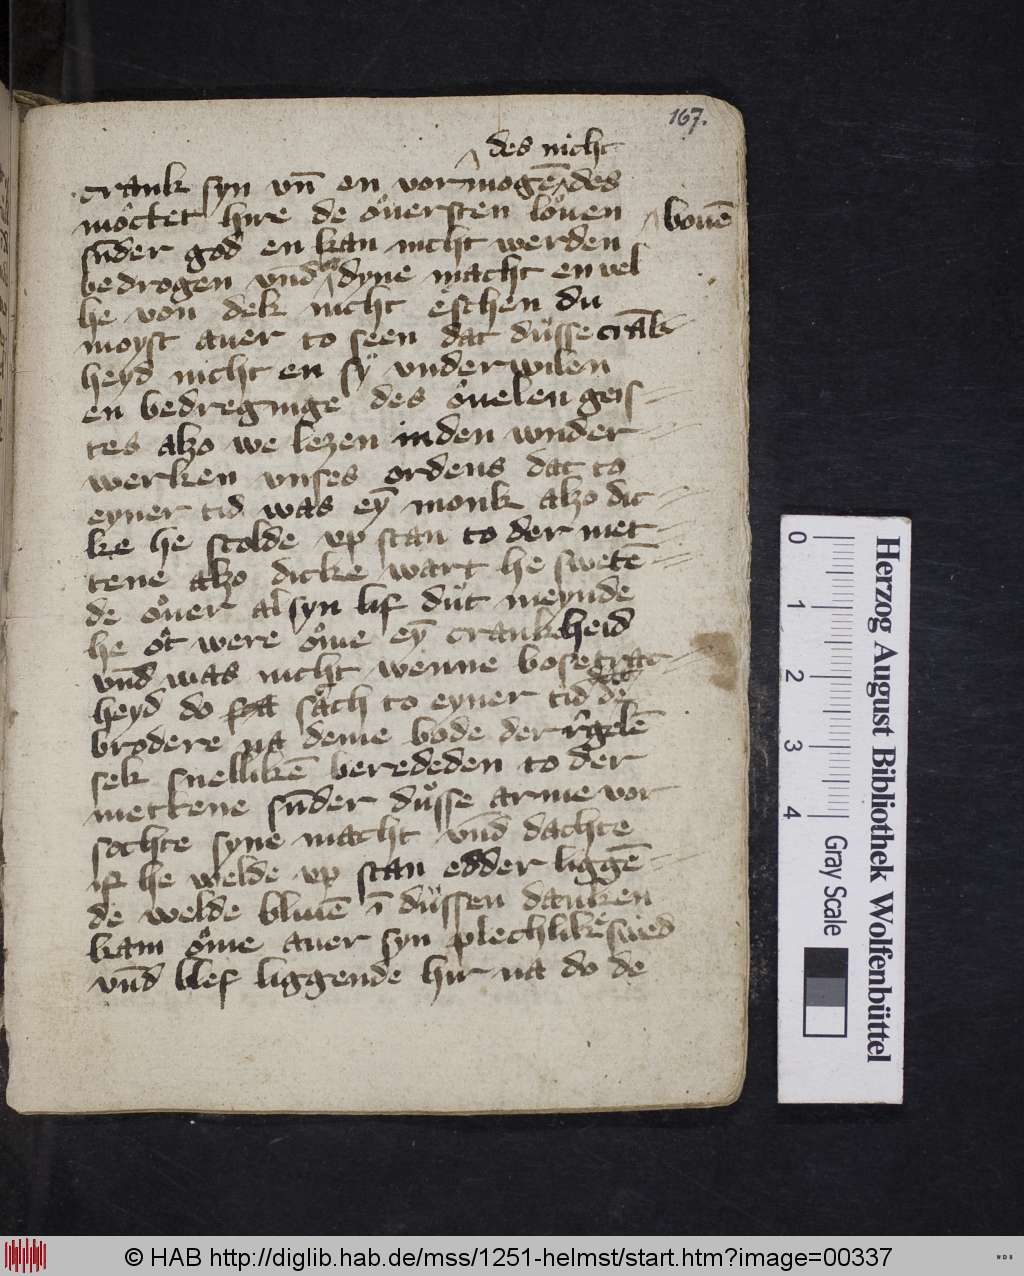 167.
des nicht
crank syn vn̄ en vormogē des
moͤctet hire de oͤuersten loͤuen bouē
sūder god en kan nicht werden
bedrogen vn̄d dyne macht en vel
he von dek nicht eschen du
moyst auer to seen dat duͤsse crāk
heyd nicht en sÿ vnderwilen
en bedreginge des oͤuelen geis
tes alzo we lezen in den wnder
werken vnses ordens dat to
eyner tid was eȳ monk alzo dic
ke he scolde vp stan to der met
tene alzo dicke wart he swetē
de oͤuer al syn lif duͤt meynde
he ot were oͤme eȳ crankheid
vn̄d was nicht wenne bose
heyd do sach to eyner tid de
brodere na deme bode der regelē
sek snellikē berededen to der
mettene sūder duͤsse arme vor
sochte syne macht vn̄d dachte
if he welde vp stan edder liggē
de welde bliuē ī duͤssen danken
kam oͤme auer syn plechlike swed
vn̄d blef liggende hir na do de
Herzog August Bibliothek Wolfenbüttel
0 1 2 3 4 Gray Scale
© HAB http://diglib.hab.de/mss/1251-helmst/start.htm?image=00337